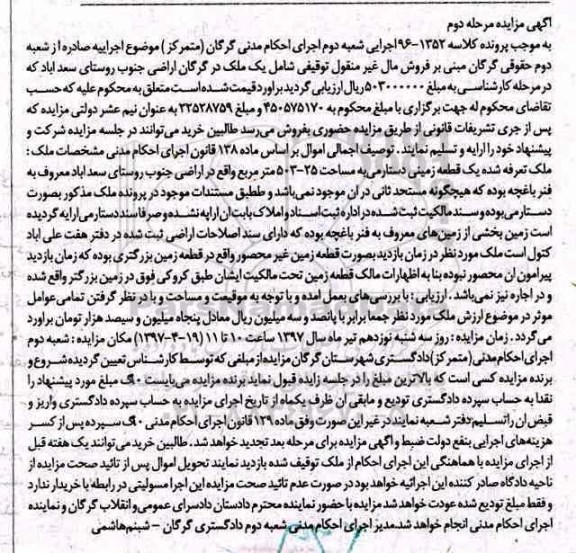 آگهی مزایده مرحله دوم
به موجب پرونده کلاسه ۱۳۵۲-۹۶ اجرایی شعبه دوم اجرای احکام مدنی گرگان (متمرکز) موضوع اجراییه صادره از شعبه
دوم حقوقی گرگان مبنی بر فروش مال غیر منقول توقیفی شامل یک ملک در گرگان اراضی جنوب روستای سعد اباد که
در مرحله کارشناسی به مبلغ ۵۰۳۰۰۰۰۰۰ ریال ارزیابی گردید براورد قیمت شده است متعلق به محکوم علیه که حسب
تقاضای محکوم له جهت برگزاری با مبلغ محکوم به ۴۵۰۵۷۵۱۷۰ و مبلغ ۲۲۵۲۸۷۵۹ به عنوان نیم عشر دولتی مزایده که
پس از جری تشریفات قانونی از طریق مزایده حضوری بفروش می‌رسد طالبین خرید می‌توانند در جلسه مزایده شرکت و
پیشنهاد خود را ارایه و تسلیم نمایند . توصیف اجمالی اموال بر اساس ماده ۱۳۸ قانون اجرای احکام مدنی مشخصات ملک :
ملک تعرفه شده یک قطعه زمینی دستارمی به مساحت ۲۵-۵۰۳ متر مربع واقع در اراضی جنوب روستای سعد اباد معروف به
فنر باغچه بوده که هیچگونه مستحد ثانی در ان موجود نمی‌باشد و طظبق مستندات موجود در پرونده ملک مذکور بصورت
دستارمی بوده و سند مالکیت ثبت شده در اداره ثبت اسناد و املاک بابت ان ارایه نشده و صرفا سند دستارمی ارایه گردیده
است زمین بخشی از زمین‌های معروف به فنر باغچه بوده که دارای سند اصلاحات اراضی ثبت شده در دفتر هفت علی اباد
کتول است ملک مورد نظر در زمان بازدید بصورت قطعه زمین غیر محصور واقع در قطعه زمین بزرگتری بوده که زمان بازدید
پیرامون ان محصور نبوده بنا به اظهارات مالک قطعه زمین تحت مالکیت ایشان طبق کروکی فوق در زمین بزرگتر واقع شده
و در اجاره نیز نمی‌باشد . ارزیابی : با بررسی‌های بعمل امده و با توجه به موقعیت و مساحت و با در نظر گرفتن تمامی عوامل
موثر در موضوع ارزش ملک مورد نظر جمعا برابر با پانصد و سه میلیون ریال معادل پنجاه میلیون و سیصد هزار تومان براورد
می‌گردد . زمان مزایده : روز سه شنبه نوزدهم تیر ماه سال ۱۳۹۷ ساعت ۱۰ تا ۱۱ (۱۹-۴-۱۳۹۷) مکان مزایده : شعبه دوم
اجرای احکام مدنی (متمرکز) دادگستری شهرستان گرگان مزایده از مبلغی که توسط کارشناس تعیین گردیده شروع و
برنده مزایده کسی است که بالاترین مبلغ را در جلسه زایده قبول نماید برنده مزایده می‌بایست مبلغ مورد پیشنهاد را
نقدا به حساب سپرده دادگستری تودیع و مابقی ان ظرف یکماه از تاریخ اجرای مزایده به حساب سپرده دادگستری واریز و
قبض ان را تسلیم دفتر شعبه نمایند در غیر این صورت وفق ماده ۱۲۹ قانون اجرای احکام مدنی سپرده پس از کسر
هزینه‌های اجرایی بنفع دولت ضبط و اگهی مزایده برای مرحله بعد تجدید خواهد شد . طالبین خرید می‌توانند یک هفته قبل
از اجرای مزایده با هماهنگی این اجرای احکام از ملک توقیف شده بازدید نمایند تحویل اموال پس از تائید صحت مزایده از
ناحیه دادگاه صادر کننده این اجرائیه خواهد بود در صورت عدم تائید صحت مزایده این اجرا مسولیتی در رابطه با خریدار ندارد
و فقط مبلغ تودیع شده عودت خواهد شد مزایده با حضور نماینده محترم دادستان دادسرای عمومی و انقلاب گرگان و نماینده
اجرای احکام مدنی انجام خواهد شد. مدیر اجرای احکام مدنی شعبه دوم دادگستری گرگان - شبنم هاشمی